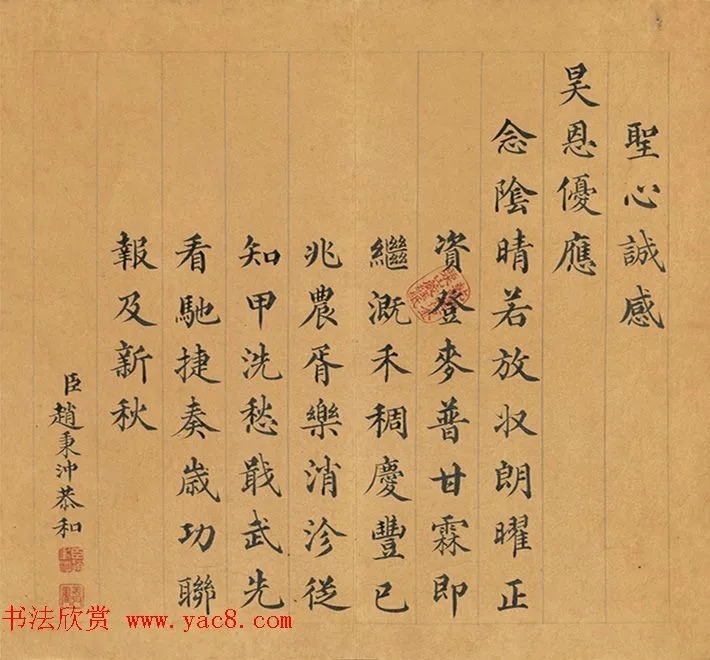 聖心誠感
昊恩優應
念陰晴若放収朗曜正
資登麥普甘霖即
繼溉禾稠慶豐已
兆農胥樂消沴從
知甲洗愁戢武先
看馳捷奏歳功聯
報及新秋
臣趙秉沖恭和
书法欣赏 www.yac8.com